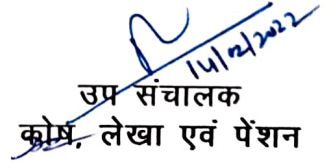 14/02/2022
उप संचालक
कोष, लेखा एवं पेंशन